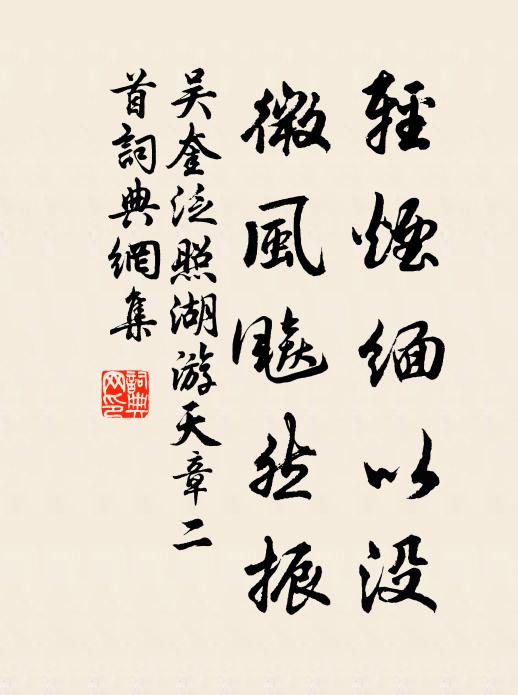 輕煙緬以没
微風飈然振
吴奎泛照湖游天章二
首詞典網集
詞典网印